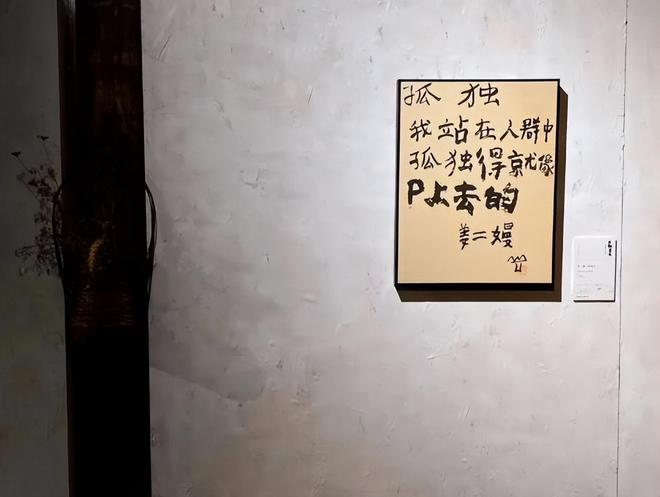 孤 独
我站在人群中
孤独得就像
P上去的
姜二嫚